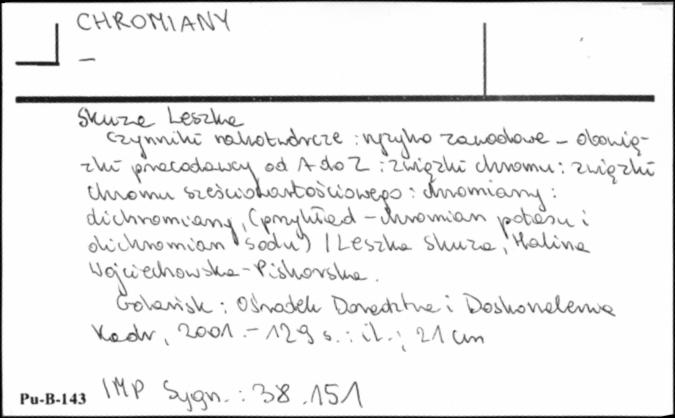 CHROMIANY
–
Skuza Leszka
Czynniki rakotwórcze : ryzyko zawodowe – obowią-
zki pracodawcy od A do Z : związki chromu : związki
chromu sześciowartościowego : chromiany :
dichromiany, (przykład – chromian potasu i
dichromian sodu) / Leszka Skuza, Halina
Wojciechowska-Piskorska.
Gdańsk : Ośrodek Doradztwa i Doskonalenia
Kadr, 2001. – 129 s. : il. ; 21 cm
Pu-B-143 IMP Sygn. : 38.151